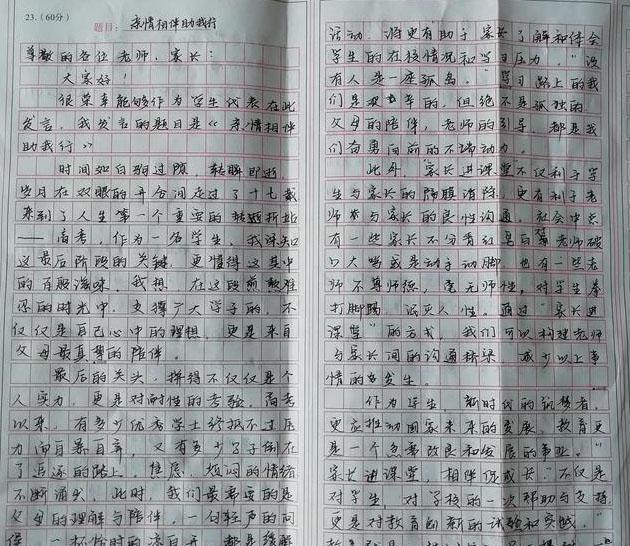 23.(60分)
题目: 亲情相伴助我行
尊敬的各位老师、家长:
大家好!
很荣幸能够作为学生代表在此
发言,我发言的题目是《亲情相伴
助我行》
时间如白驹过隙,转瞬即逝,
岁月在双眼的开合间走过了十七载
来到了人生第一个重要的转折站
——高考,作为一名学生,我深知
这最后阶段的关键,更懂得这其中
的百般滋味。我想,在这段煎熬难
忍的时光中,支撑广大学子的,不
仅仅是自己心中的理想,更是来自
父母最真挚的陪伴。
最后的关头,拼得不仅仅是个
人实力,更是对耐性的考验。高考
以来,有多少优秀学士终抵不过压
力而自暴自弃,又有多少学子倒在
了追逐的路上,焦虑、烦闷的情绪
不断涌来,此时,我们最需要的是
父母的理解与陪伴,一句轻声的问
候,一杯恰时的凉白开,都是缓解
活动,将更有助于家长了解和体会
学生的在校情况和学习压力。“没
有人是一座孤岛。”学习路上的我
们是艰辛的,但绝不是孤独的,
父母的陪伴,老师的引导,都是我
们奋勇向前的不竭动力。
此外,“家长进课堂”不仅利于学
生与家长的隔膜消除,更有利于老
师与家长的良性沟通。社会中总
有一些家长不分青红皂白骂老师破
口大骂或是动手动脚,也有一些老
师不算师德,毫无师性,对学生拳
打脚踢,泯灭人性。通过“家长进
课堂”的方式,我们可以构建老师
与家长间的沟通桥梁,减少以上事
情的发生。
作为学生,新时代的筑梦者,
更应推动国家未来的发展,教育更
是一个急需改良和发展的事业。“
家长进课堂,相伴促成长”不仅是
对学生、对学校的一次帮助与支持,
更是对教育创新的试验和实践。